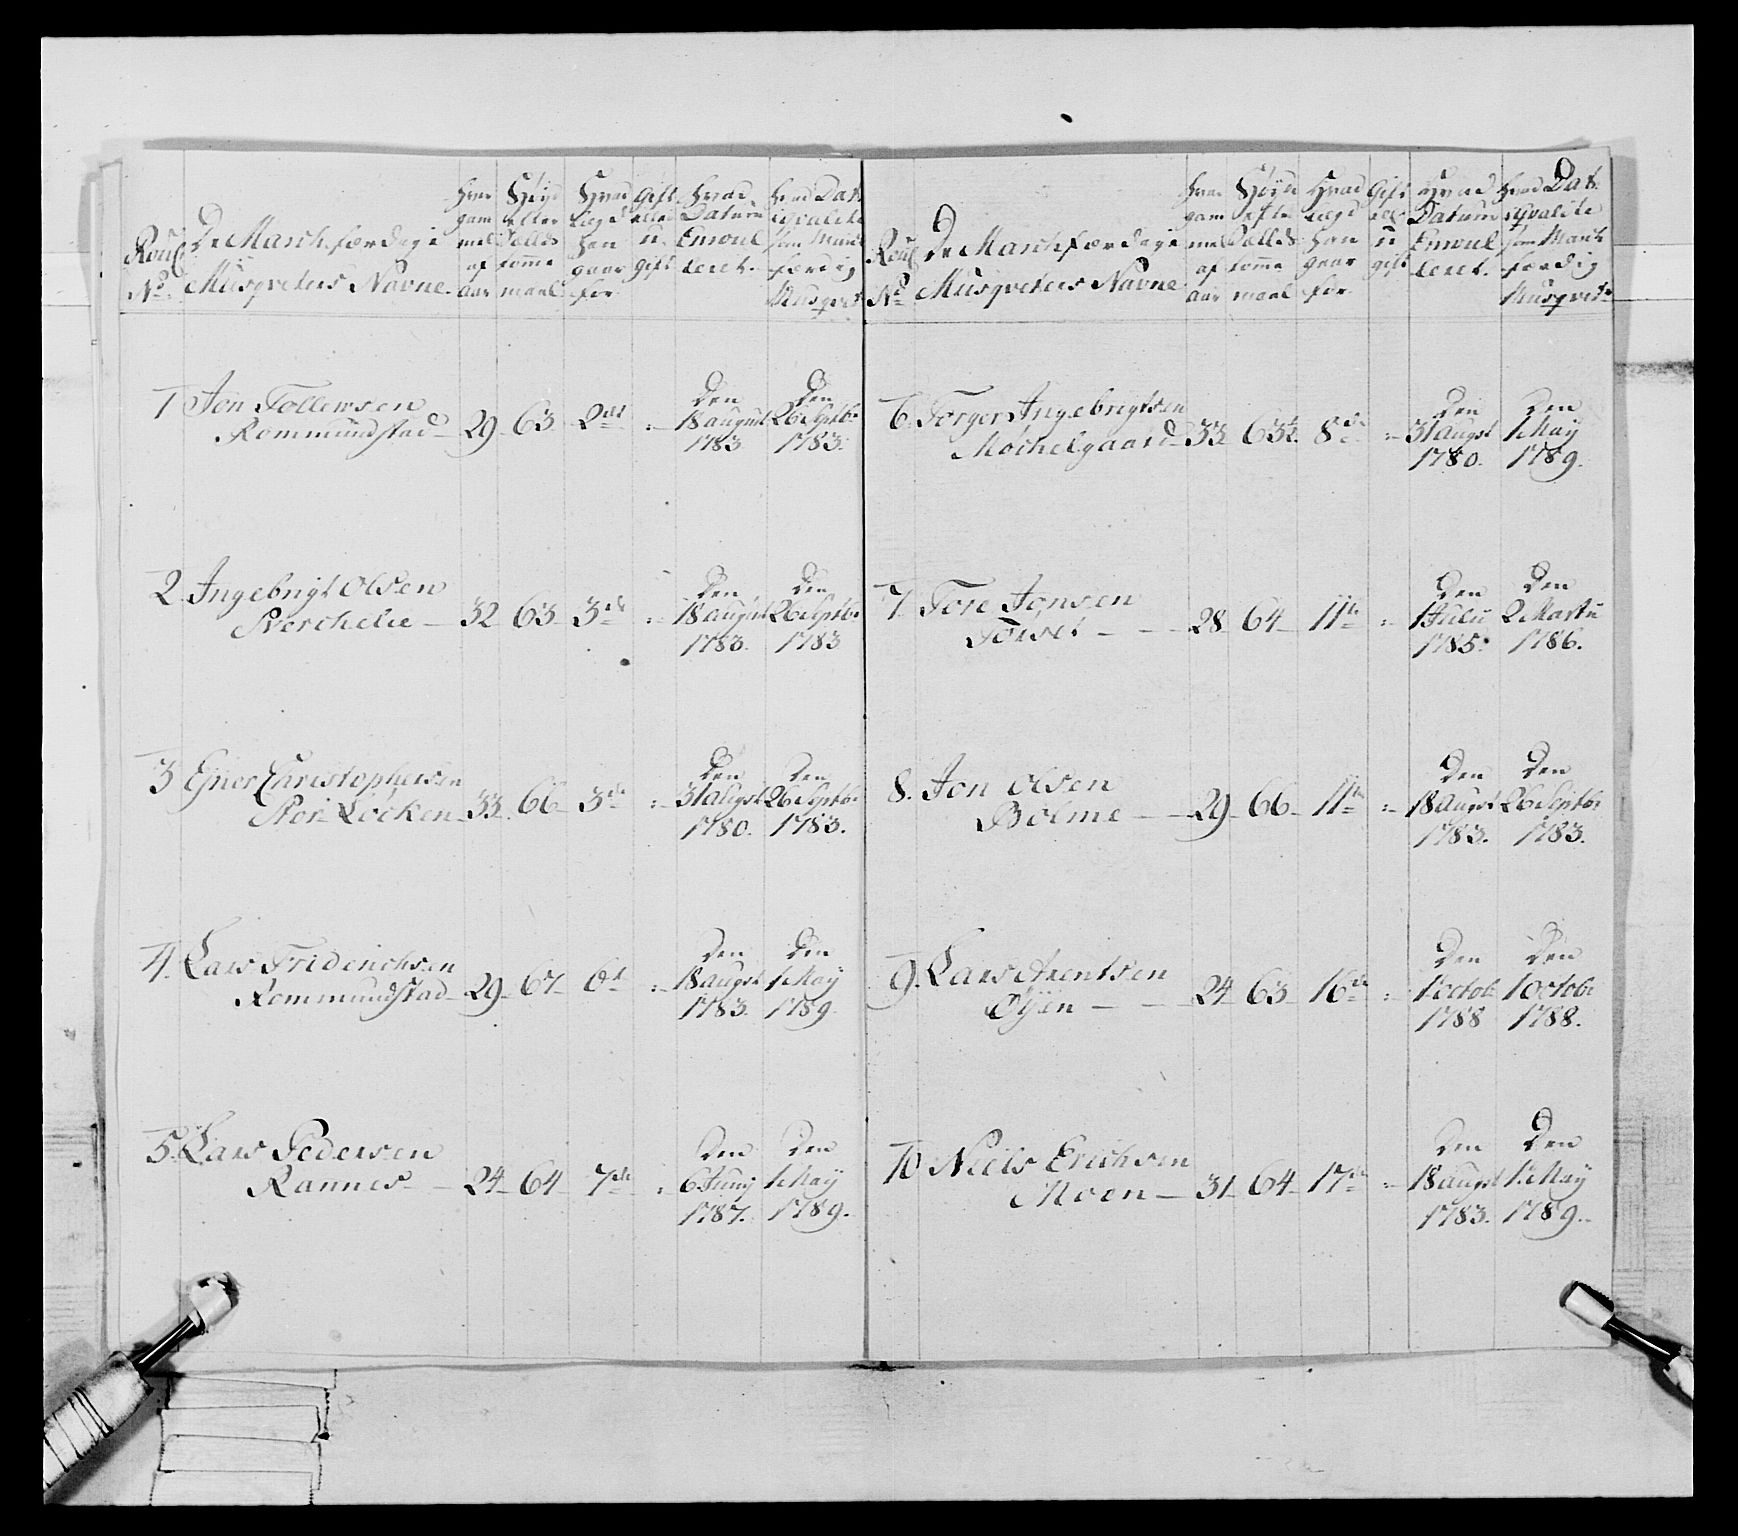 Rou¢ No De March færdige Musqveters Navne
Hvor gam mel af aar
Höyde efter Sælds tomme maal
Hvad Lægd han gaar for
Gift eller u Gift
Hvad Datum Enroul leret.
Hvad Dat. i qvalite som March færdig Musqvet
1 Jon Tollewsen Rommundstad 29 63 2den den 18 august 1783 den 26 Septbr 1783.
2 Ingebrigt Olsen Sverchelie 32 63 3de den 18 august 1783. den 26 Septbr 1783
3 Ejner Christophersen Stor Löcken 33 66 3de den 31 augst 1780. den 26 Septbr 1783.
4. Lars Friderichsen Rommundstad 29 67 6t den 18 augst 1783. den 1 May 1789.
5. Lars Pedersen Rannes 24 64 7de den 6 Juny 1787. den 1 May 1789.
No De March færdige Musqveters Navne
Hvor gam mel af aar
Höyde efter Sælds tomme maal
Hvad Lægd han gaar for
Gift eller u gift
Hvad Datum Enroul leret.
Hvad Dat. i qvalite som March færdig Musqvet
6. Torger Ingebrigtsen Mochelgaard 33 63½ 8de den 31 augst 1780. den 1 May 1789.
7. Tore Jonsen Torset 28 64 11te den 1 Julii 1785. den 2 Martii 1786.
8. Jon Olsen Bolme 29 66 11te den 18 augst 1783. den 26 Septbr 1783.
9. Lars Arentsen Öyen 24 63 16de den 1 Octob 1788 den 1 Octobr 1788.
10 Niels Erichsen Moen 31 64 17de den 18 augst 1783. den 1 May 1789.